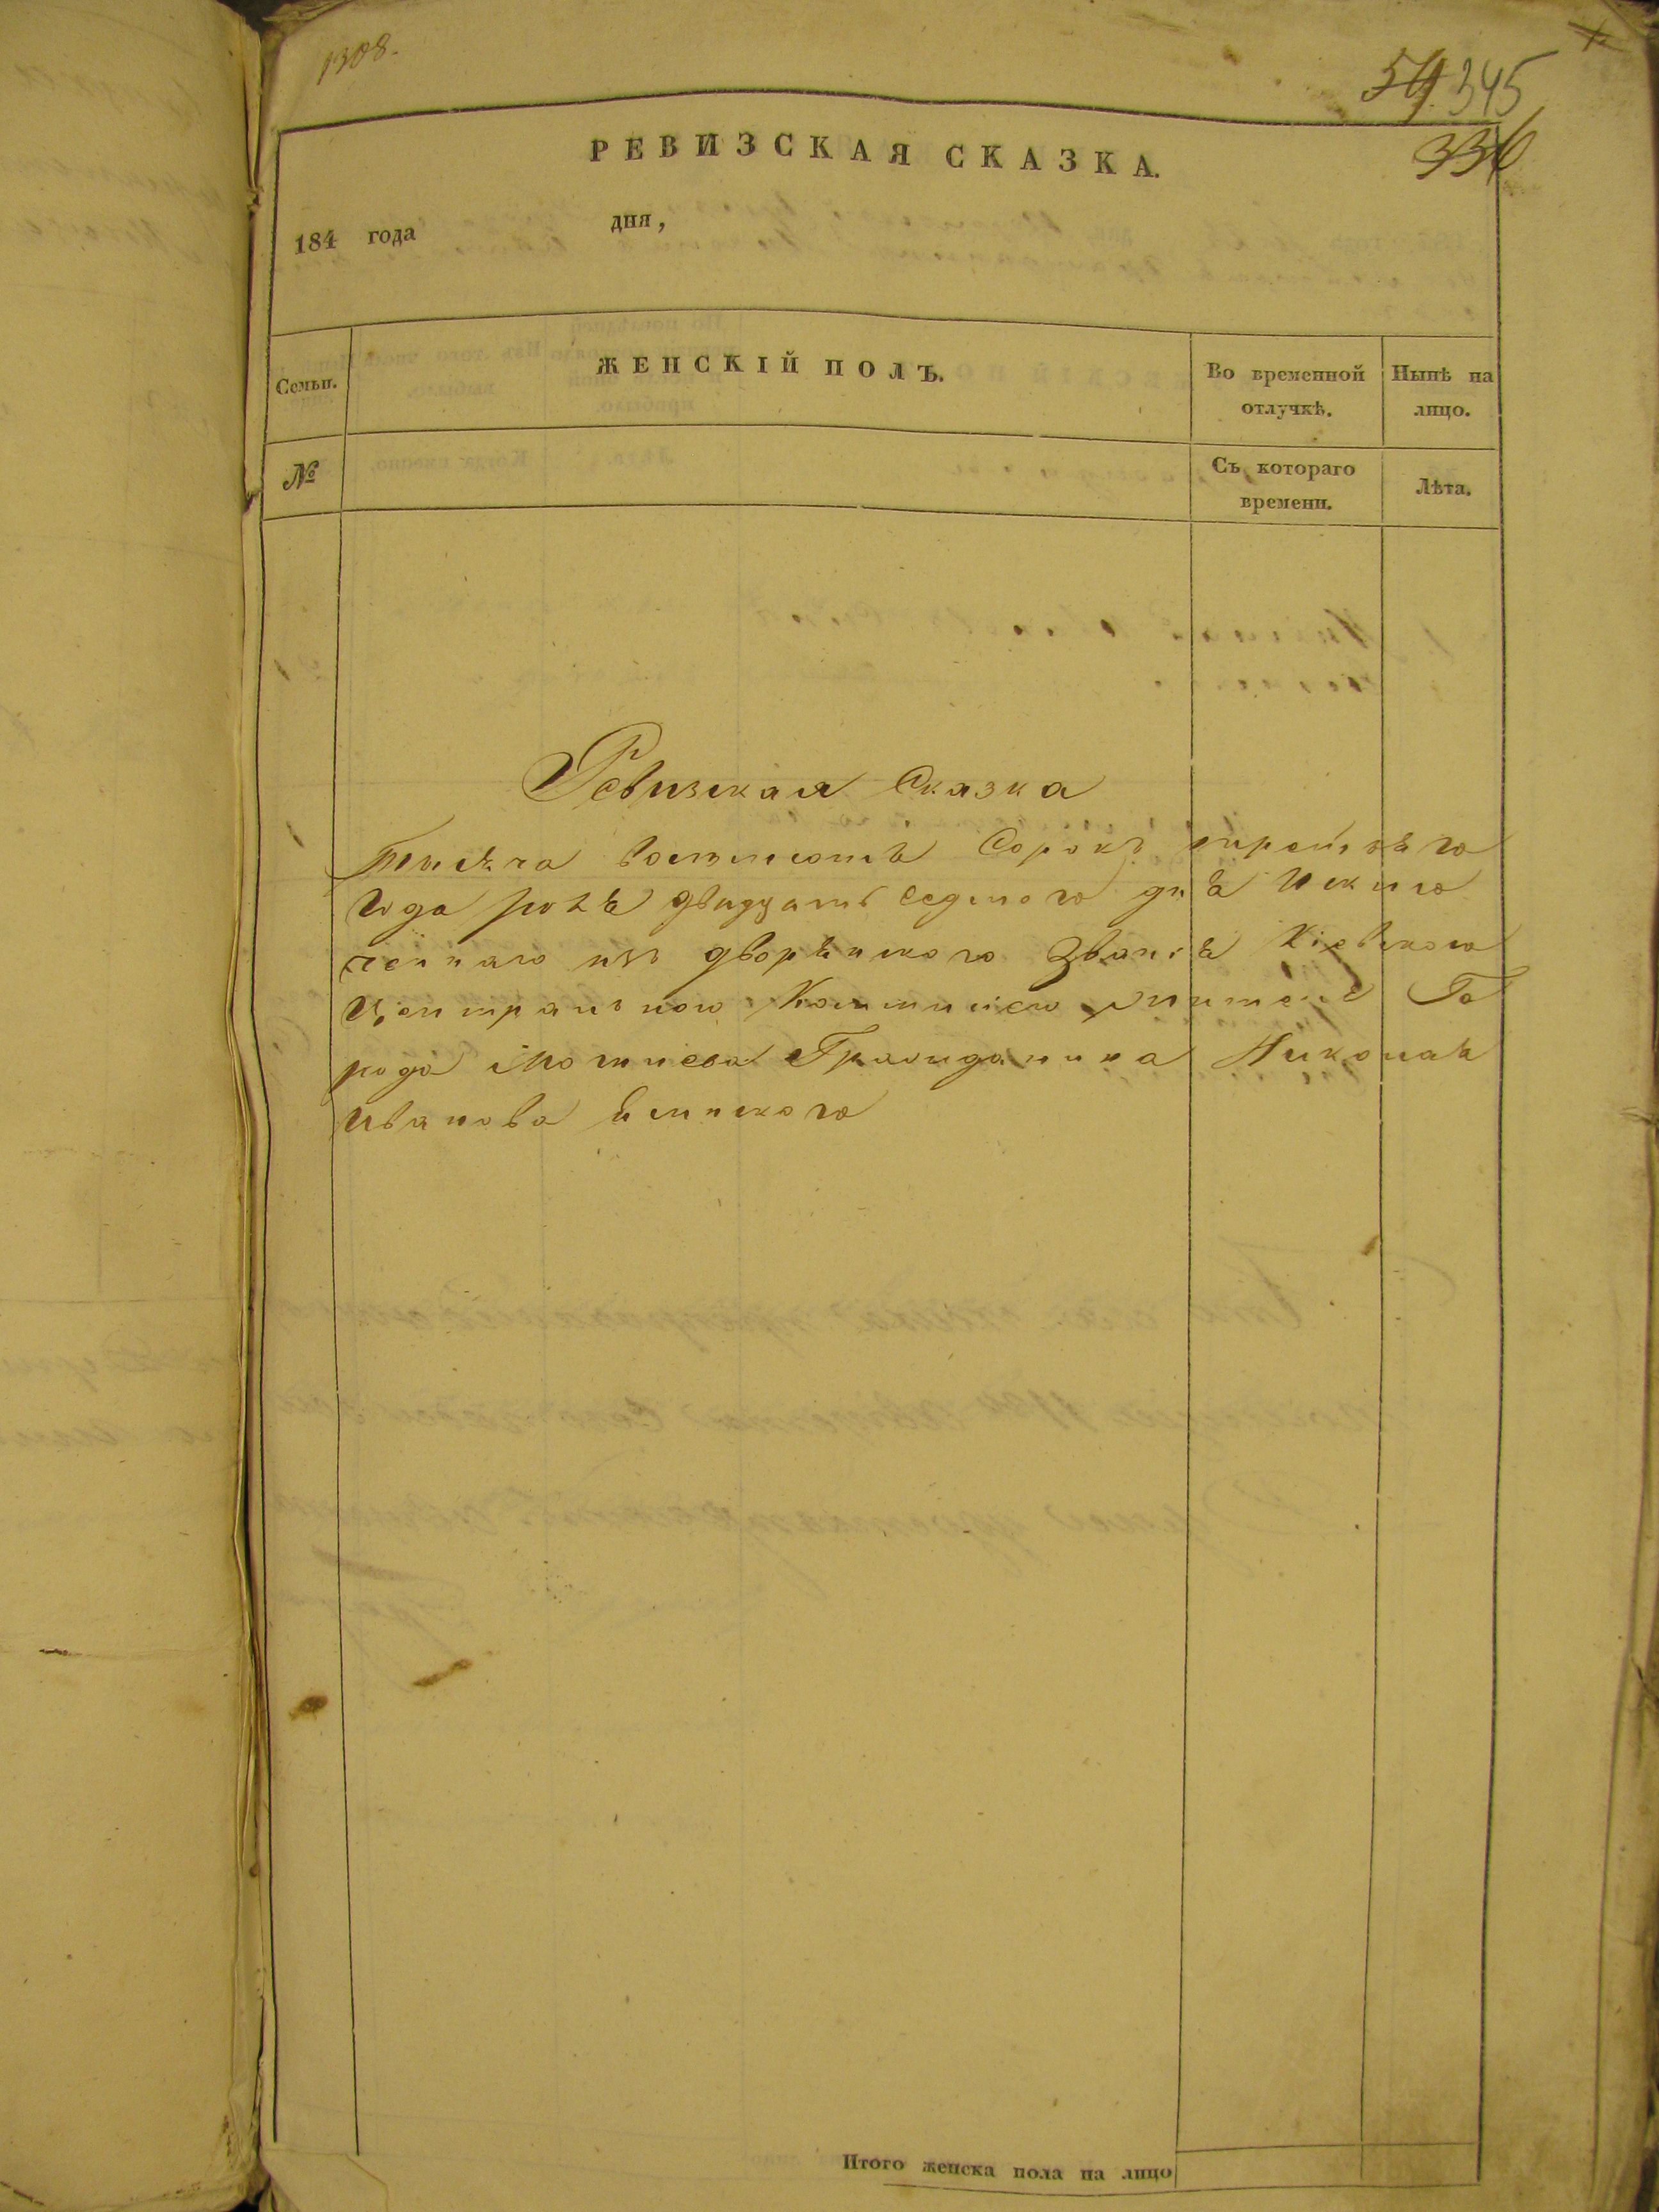 1308.
59. 345
336
РЕВИЗСКАЯ СКАЗКА.
184 года дня,
Семьи. ЖЕНСКІЙ ПОЛЪ. Во временной отлучкѣ. Нынѣ на лицо.
№ Съ котораго времени. Лѣта.
Ревизская Сказка
Тысяча восемсотъ Сорокъ
Года двадцать седмого дня Исклю
ченнаго изъ дворянского Званія Кіевскою
Центральною Коммисіею Го
рода Гражданина Николая
Иванова
Итого женска пола на лицо